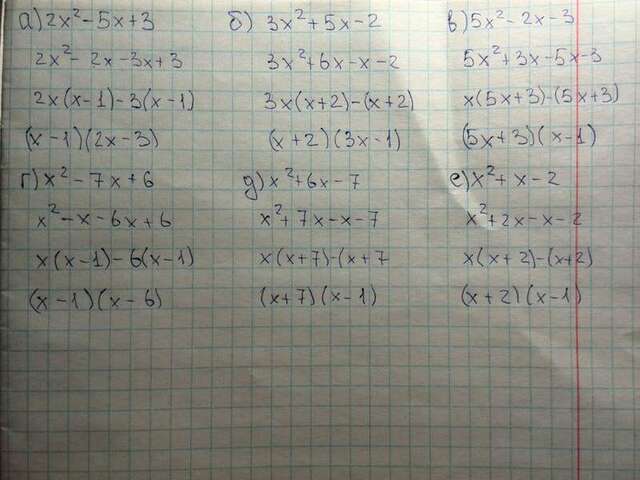 а) 2x² - 5x + 3
2x² - 2x - 3x + 3
2x(x-1) - 3(x-1)
(x-1)(2x-3)
б) 3x² + 5x - 2
3x² + 6x - x - 2
3x(x+2) - (x+2)
(x+2)(3x-1)
в) 5x² - 2x - 3
5x² + 3x - 5x - 3
x(5x+3) - (5x+3)
(5x+3)(x-1)
г) x² - 7x + 6
x² - x - 6x + 6
x(x-1) - 6(x-1)
(x-1)(x-6)
д) x² + 6x - 7
x² + 7x - x - 7
x(x+7) - (x+7
(x+7)(x-1)
е) x² + x - 2
x² + 2x - x - 2
x(x+2) - (x+2)
(x+2)(x-1)